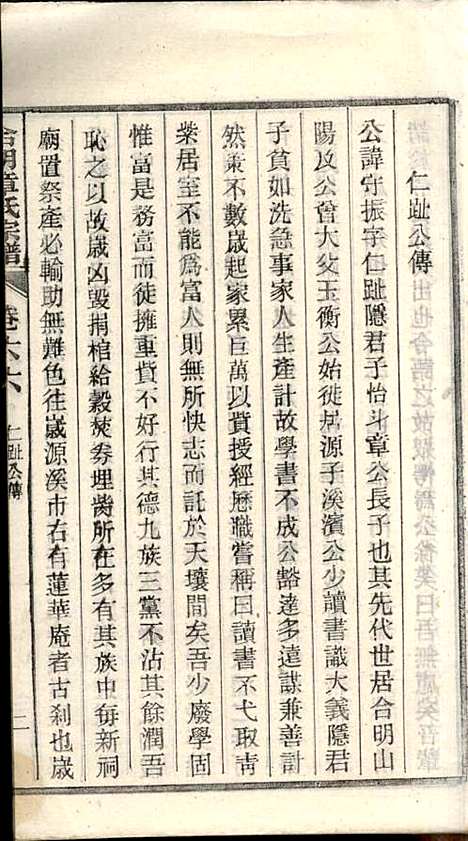 仁趾公傳
公諱守振字仁趾隱君子怡斗章公長子也其先代世居合明山
陽及公曾大父玉衡公始徙居源子溪濱公少讀書識大義隱君
子貧如洗急事家人生產計故學書不成公豁達多遠謀兼善計
然策不數歲起家累巨萬以貲授經歷職嘗稱曰讀書不弋取青
紫居室不能爲富人則無所快志而託於天壤間矣吾少廢學固
惟富是務富而徒擁重貲不好行其德九族三黨不沾其餘潤吾
恥之以故歲凶毀捐棺給穀焚券埋胔所在多有其族中每新祠
廟置祭產必輸助無難色往歲源溪市右有蓮華庵者古刹也歲
合明章氏宗譜
卷六六
仁趾公傳
二